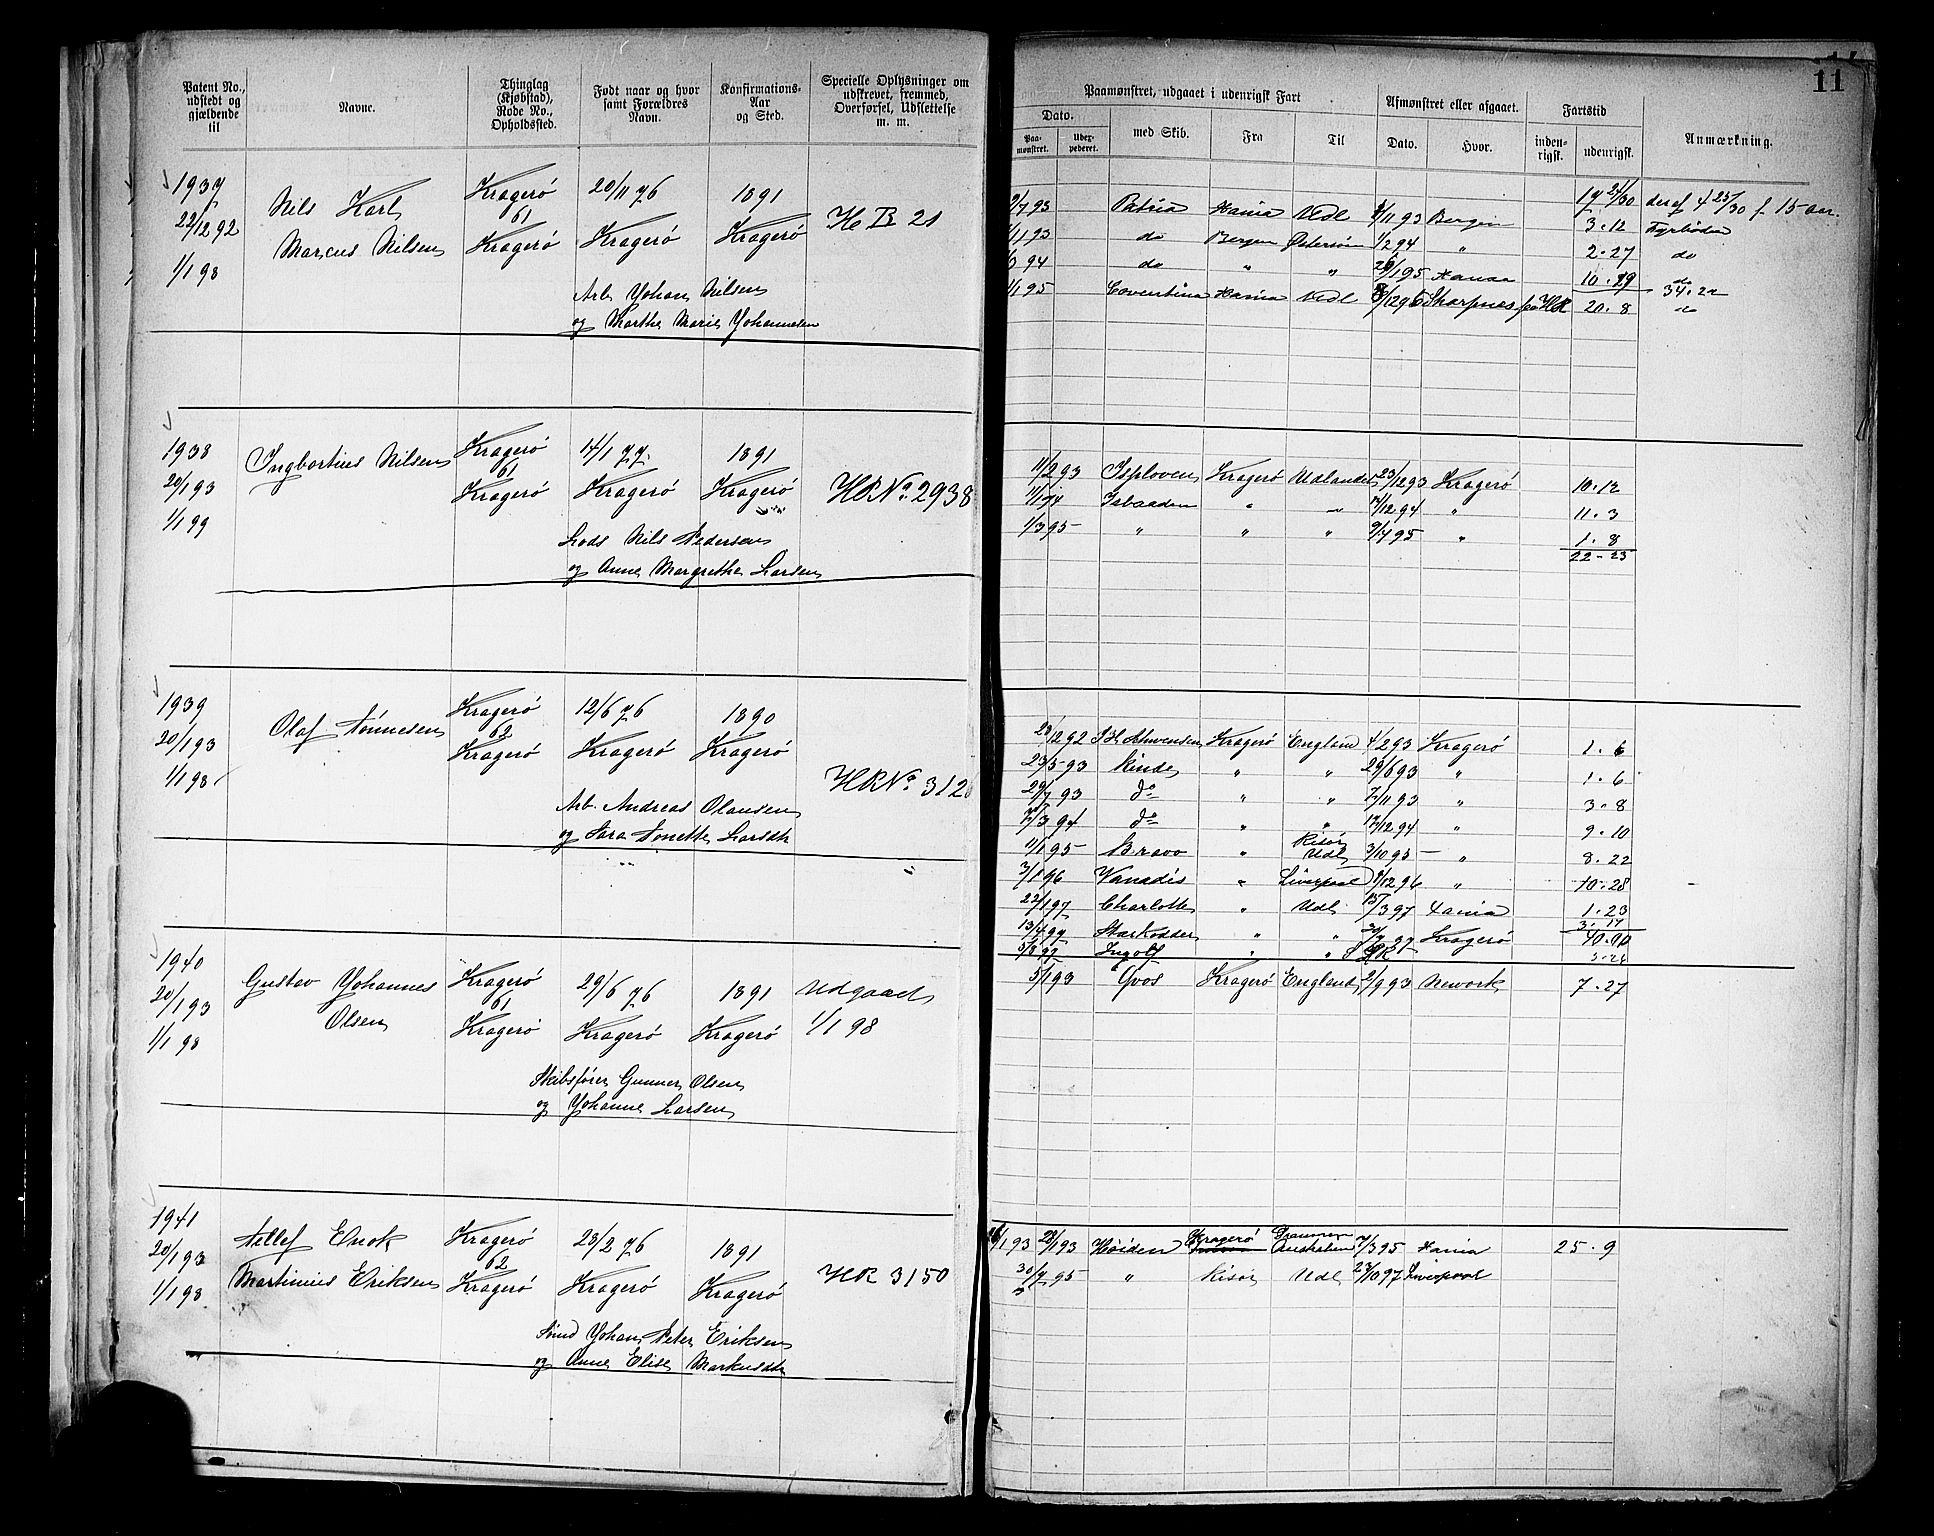 11
Patent No., udstedt og gjældende til
Navne.
Thinglag (Kjøbstad), Rode No., Opholdssted.
Født naar og hvor samt Forældres Navn.
Konfirmations-Aar og Sted.
Specielle Oplysninger om udskrevet, fremmed, Overførsel, Udslettelse m. m.
Paamønstret, udgaaet i udenrigsk Fart
Afmønstret eller afgaaet.
Fartstid
Anmærkning.
Dato.
Paa-mønstret.
Udex-pederet.
med Skib.
Fra
Til
Dato.
Hvor.
inden-rigsk.
udenrigsk.
1937 Kragerö 20/11 76 1891
Nils Karl 61 H B 21
22/12 92 Marcus Nilsen Kragerö Kragerö Kragerö
1/1 98
Arb. Johan Nilsen
og Marthe Marie Johannesen
17 24/30 deraf 4 25/30 f. 15 aar.
/7 93 Patria Xania Udl /11 93 Bergen 3.12 Fyrbøder
/11 93 do Bergen Østersøn 1/2 94 " 2.27 do
/3 94 do " " /1 95 Xania 10.29 do
34.22
/1 95 Coventina Xania Udl /12 96 Skarpnes 20.8 do
1938 Kragerö 14/1 77. 1891
Ingbortius Nilsen 61
20/1 93 Kragerö Kragerö Kragerö HRNo. 2938
1/1 99
Lods Nils Pedersen
og Anne Margrethe Larsen
11/2 93 Isploven Kragerö Udlandet 23/12 93 Kragerö 10.12
11/1 94 Isbaaden " " 14/12 94 " 11.3
1/3 95 " " " 9/4 95 " 1.8
22-23
1939 Kragerö 12/6 76 1890
Olaf Tönnesen 62
20/1 93 Kragerö Kragerö Kragerö
1/1 98 HRNo 312
Arb. Andreas Olausen
og Sara Tonette Larsdtr
/12 92 Kragerö England 4/2 93 Kragerö 1.6
23/5 93 Rinde " " 29/6 93 " 1.6
29/7 93 do " " 7/11 93 " 3.8
7/3 94 do " " 14/12 94 " 9.10
11/1 95 Bravo " Risør Udl 3/10 95 " 8.22
7/1 96 Vanadis " Liverpool 1/12 96 " 10.28
22/1 97 Charlotte " Udl. 15/3 97 Xania 1.23
3.17
13/4 97 Starkodder " " Kragerö 40.00
5/8 97 Ingolf " " 5.26
1940 Kragerö 29/6 76 1891 Udgaaet
Gustav Johannes 61 1/1 98
20/1 93 Olsen Kragerö Kragerö Kragerö
1/1 98
Skibsfører Gunner Olsen
og Johanne Larsen
5/1 93 Kragerö England 2/9 93 Newörk 7.27
1941 Kragerö 23/2 76 1891
Tellef Enok 62
20/1 93 Martinius Eriksen Kragerö Kragerö Kragerö HR 3150
1/1 98
Tömd Johan Peter Eriksen
og Anne Elise Markusdtr
/1 93 28/1 93 Höiden Kragerö Drammen Australien 7/3 95 Xania 25.9
30/7 95 " Risör Udl 23/10 97 Liverpool